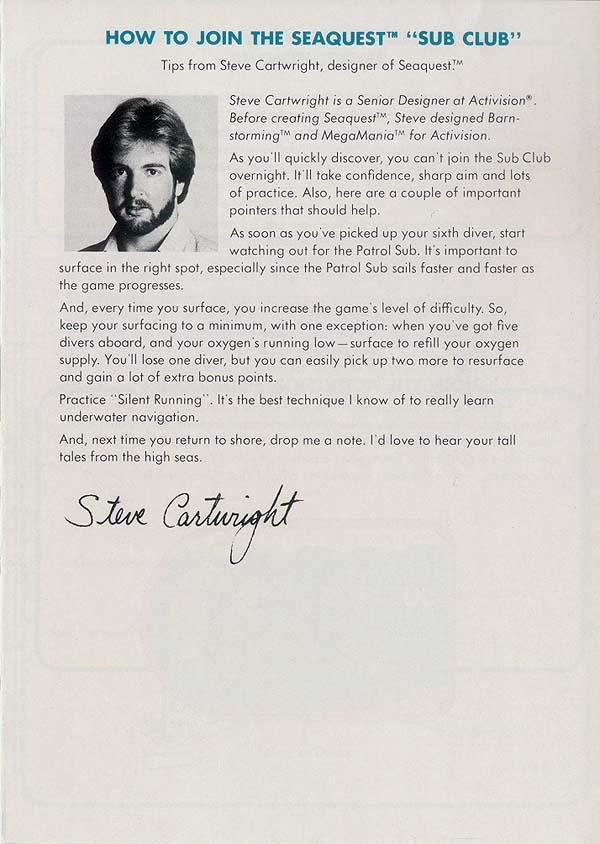 HOW TO JOIN THE SEAQUEST™ “SUB CLUB”
Tips from Steve Cartwright, designer of Seaquest.™
Steve Cartwright is a Senior Designer at Activision®.
Before creating Seaquest™, Steve designed Barn-
storming™ and MegaMania™ for Activision.
As you'll quickly discover, you can't join the Sub Club
overnight. It'll take confidence, sharp aim and lots
of practice. Also, here are a couple of important
pointers that should help.
As soon as you've picked up your sixth diver, start
watching out for the Patrol Sub. It's important to
surface in the right spot, especially since the Patrol Sub sails faster and faster as
the game progresses.
And, every time you surface, you increase the game's level of difficulty. So,
keep your surfacing to a minimum, with one exception: when you've got five
divers aboard, and your oxygen's running low—surface to refill your oxygen
supply. You'll lose one diver, but you can easily pick up two more to resurface
and gain a lot of extra bonus points.
Practice “Silent Running”. It's the best technique I know of to really learn
underwater navigation.
And, next time you return to shore, drop me a note. I'd love to hear your tall
tales from the high seas.
Steve Cartwright